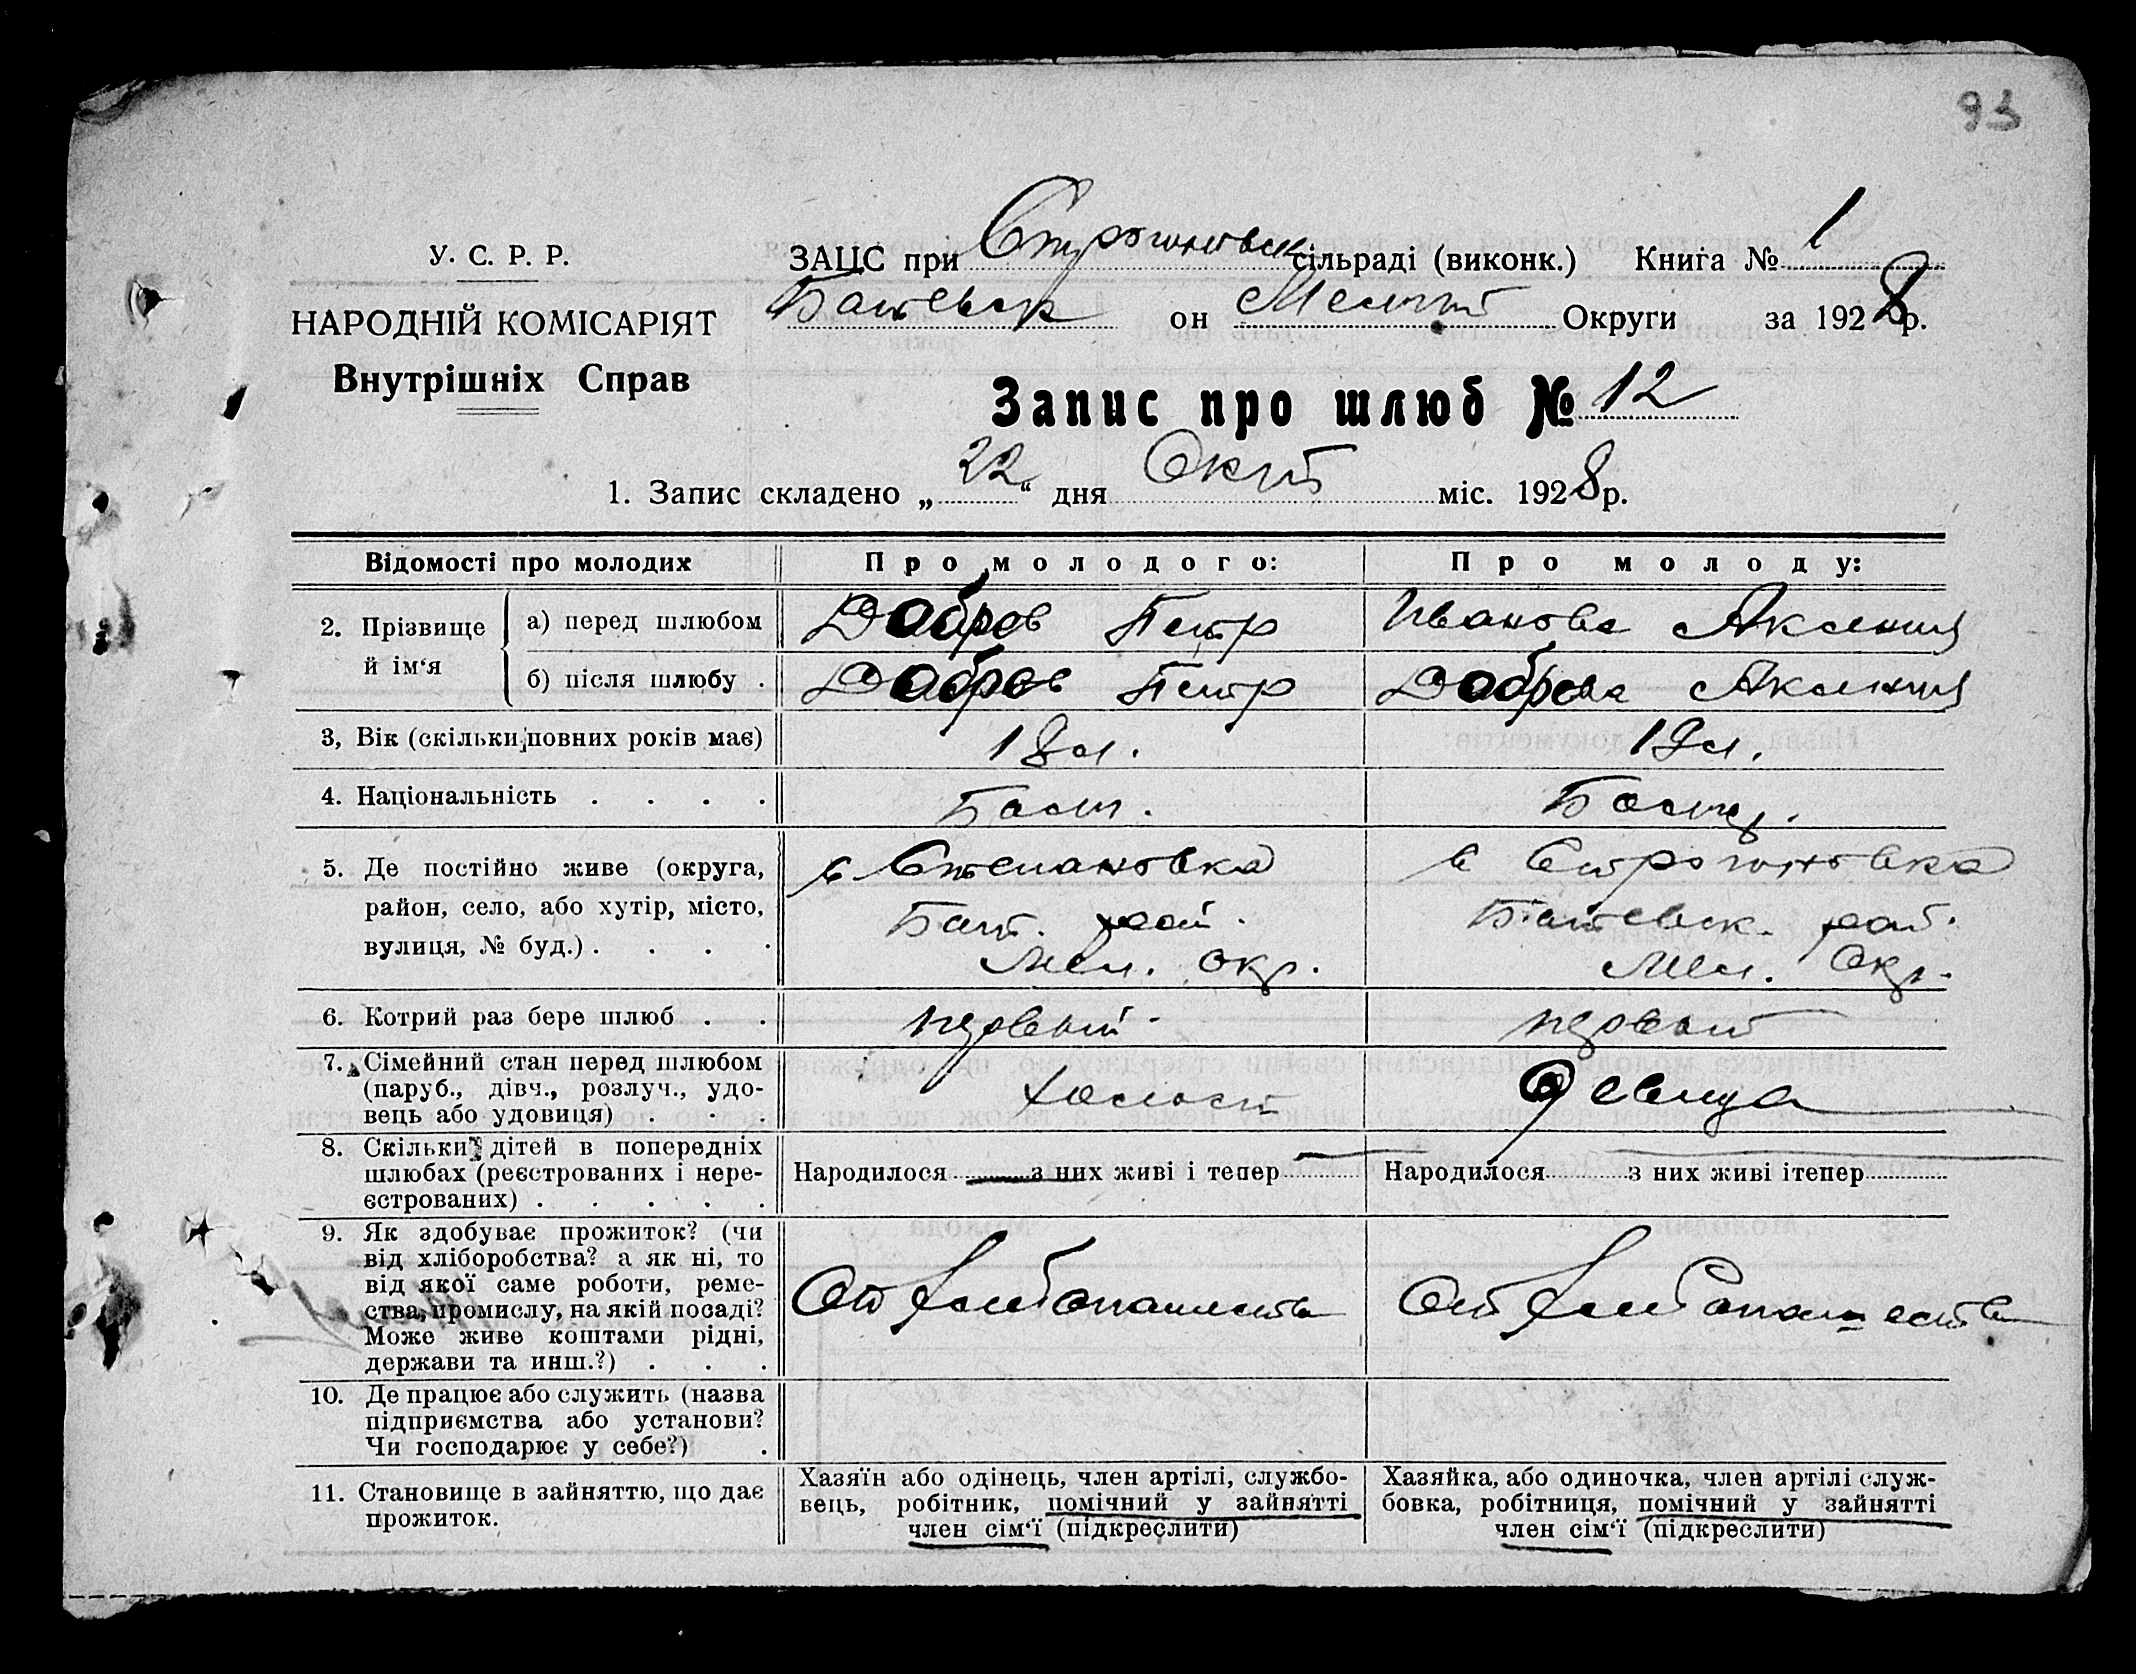 93
У. С. Р. Р.
НАРОДНІЙ КОМІСАРІЯТ
Внутрішніх Справ
ЗАЦС при Строгоновск сільраді (виконк.) Книга № 1
он Мелит Округи за 1928 р.
Запис про шлюб № 12
1. Запис складено „22“ дня Окт міс. 1928 р.
Відомості про молодих
Про молодого:
Про молоду:
2. Прізвище й ім‘я
а) перед шлюбом
Добров Петр
Иванова Аксения
б) після шлюбу .
Добров Петр
Доброва Аксения
3, Вік (скільки повних років має)
18 л.
19 л.
4. Національність . . . .
Болг.
Болгар.
5. Де постійно живе (округа,
район, село, або хутір, місто,
вулиця, № буд.) . . . .
с Степановка
рай.
Мел. окр.
с Строгоновка
рай.
Мел. Окр.
6. Котрий раз бере шлюб . .
первый
первый
7. Сімейний стан перед шлюбом
(паруб., дівч., розлуч., удо-
вець або удовиця) . . .
холост
девица
8. Скільки дітей в попередніх
шлюбах (реєстрованих і нере-
єстрованих) . . . . .
Народилося — з них живі і тепер —
Народилося з них живі ітепер —
9. Як здобуває прожиток? (чи
від хліборобства? а як ні, то
від якої саме роботи, реме-
ства, промислу, на якій посаді?
Може живе коштами рідні,
держави та инш.?) . . .
От хлебопашества
От хлебопашества
10. Де працює або служить (назва
підприємства або установи?
Чи господарює у себе?) .
11. Становище в зайняттю, що дає
прожиток.
Хазяїн або одінець, член артілі, службо-
вець, робітник, помічний у зайнятті
член сім‘ї (підкреслити)
Хазяйка, або одиночка, член артілі служ-
бовка, робітниця, помічний у зайнятті
член сім‘ї (підкреслити)